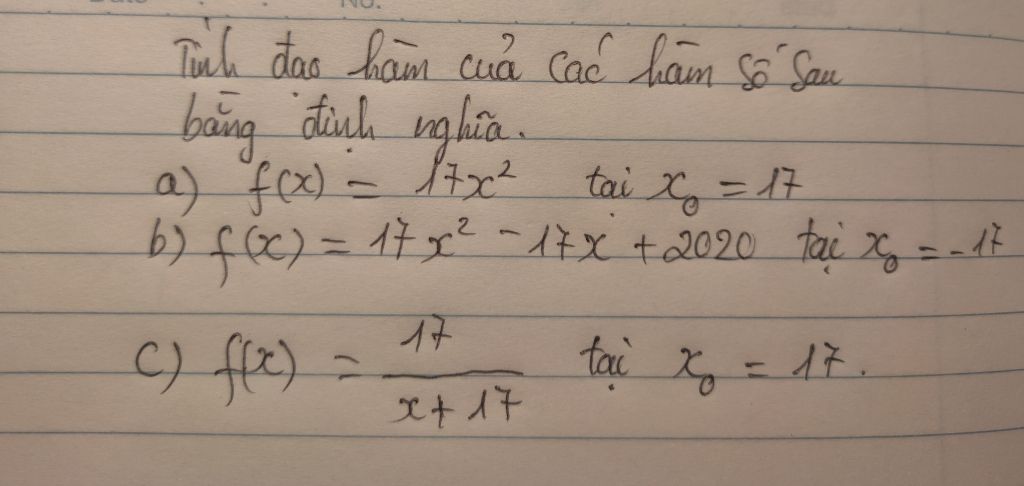 No.
Tính đạo hàm của các hàm số sau
bằng định nghĩa.
a) f(x) = 17x² tại x₀ = 17
b) f(x) = 17x² - 17x + 2020 tại x₀ = -17
c) f(x) = 17 / (x + 17) tại x₀ = 17.